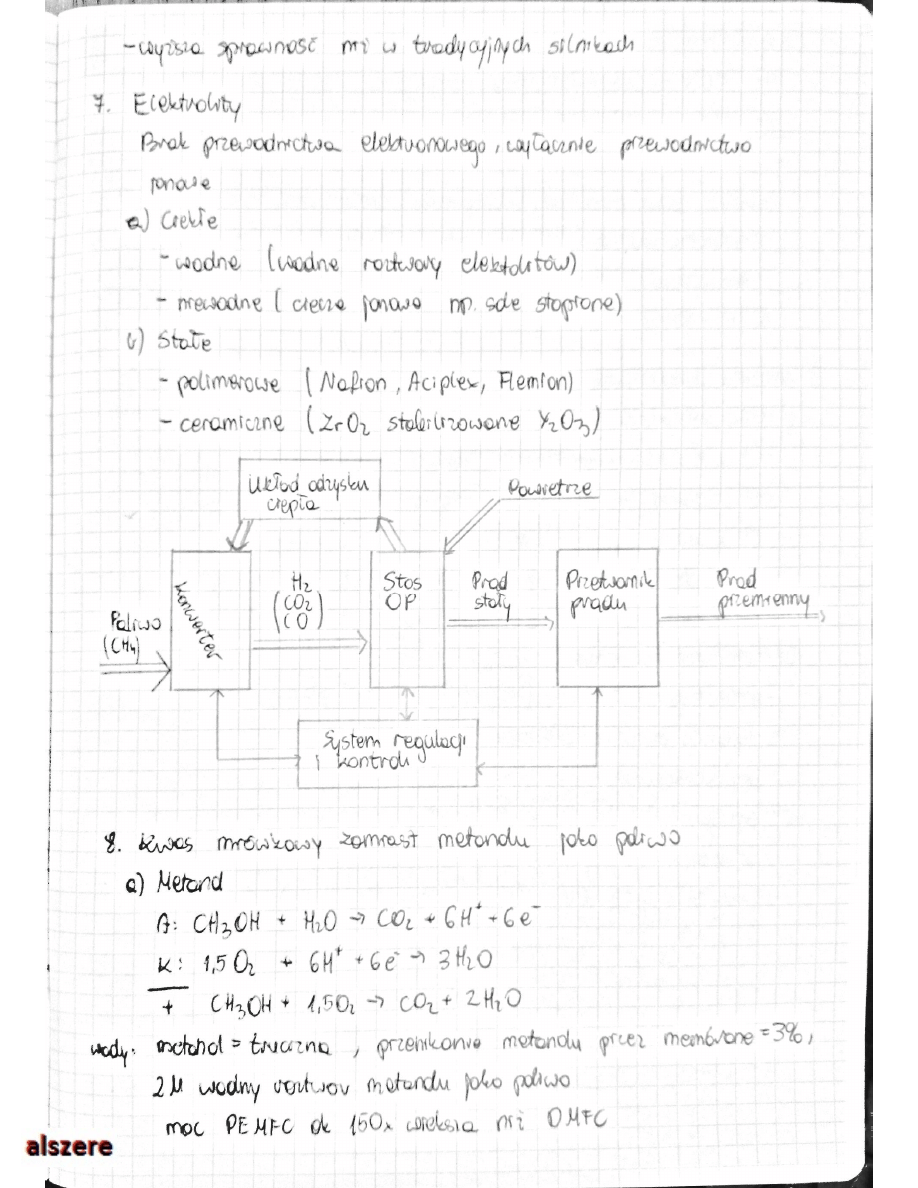 - wyższa sprawność niż w tradycyjnych silnikach
7. Elektrolity
Brak przewodnictwa elektronowego, wyłącznie przewodnictwo
jonowe
a) Ciekłe
- wodne (wodne roztwory elektolitów)
- niewodne (ciecze jonowe np. sole stopione)
b) Stałe
- polimerowe (Nafion, Aciplex, Flemion)
- ceramiczne (ZrO₂ stabilizowane Y₂O₃)
Układ odzysku
ciepła
Powietrze
Paliwo
(CH₄)
Konwerter
H₂
(CO₂
CO)
Stos
OP
Prąd
stały
Przetwornik
prądu
Prąd
przemienny
System regulacji
i kontroli
8. Kwas mrówkowy zamiast metanolu jako paliwo
a) Metanol
A: CH₃OH + H₂O → CO₂ + 6H⁺ + 6e⁻
K: 1,5 O₂ + 6H⁺ + 6e⁻ → 3H₂O
+ CH₃OH + 1,5O₂ → CO₂ + 2H₂O
wady: metanol = trucizna, przenikanie metanolu przez membranę = 3%,
2M wodny roztwór metanolu jako paliwo
moc PEMFC ok 150x większa niż DMFC
alszere